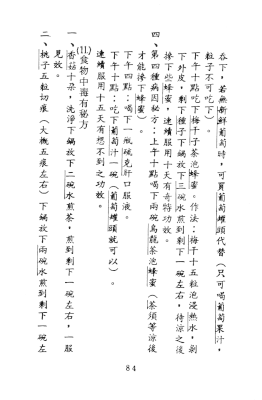 吞下，若無新鮮葡萄時，可買葡萄罐頭代替（只可喝葡萄果汁，
粒子不可吃下）。
下午十點吃下梅干子茶泡蜂蜜。作法：梅干十五粒泡浸熱水，剝
下外皮，剩下種子下鍋放下三碗水煎到剩下一碗左右，待涼之後
摻下些蜂蜜，連續服用十天有奇特功效。
四、第四種病因秘方：上午十點喝下兩碗烏龍茶泡蜂蜜（茶須等涼後
才能摻下蜂蜜）。
下午四點：喝下一瓶硫克肝口服液。
下午十點：吃下葡萄汁一碗（葡萄罐頭就可以）。
連續服用十天有想不到之功效。
(11)食物中毒有秘方
一、香菇十朵，洗淨下鍋放下二碗水煎茶，煎到剩下一碗左右，一服
見效。
二、桃子五粒切痕（大概五痕左右）下鍋放下兩碗水煎到剩下一碗左
84